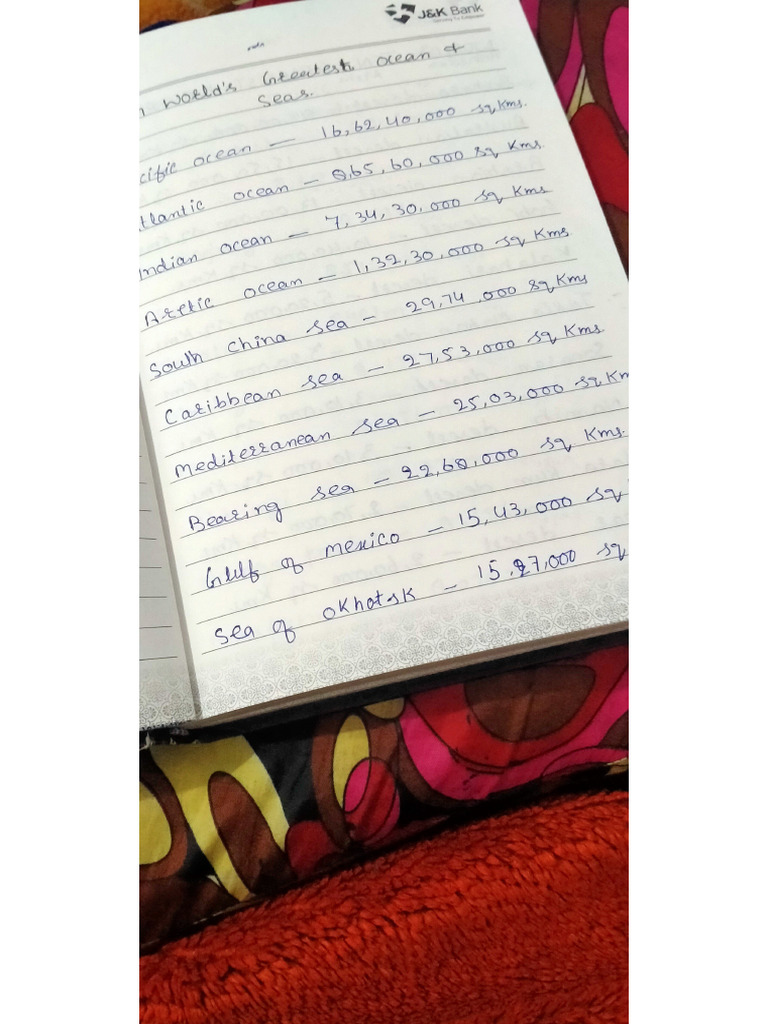 J&K Bank
Serving To Empower
World's Greatest ocean &
Seas.
cific ocean — 16,62,40,000 sq Kms.
tlantic ocean — 8,65,60,000 sq Kms.
Indian ocean — 7,34,30,000 sq Kms
Arctic ocean — 1,32,30,000 sq Kms
South China sea — 29,74,000 sq Kms
Caribbean sea — 27,53,000 sq Kms
Mediterranean sea — 25,03,000 sq Km
Bearing sea — 22,60,000 sq Kms.
Gulf of mexico — 15,43,000 sq
Sea of okhotsk — 15,27,000 sq